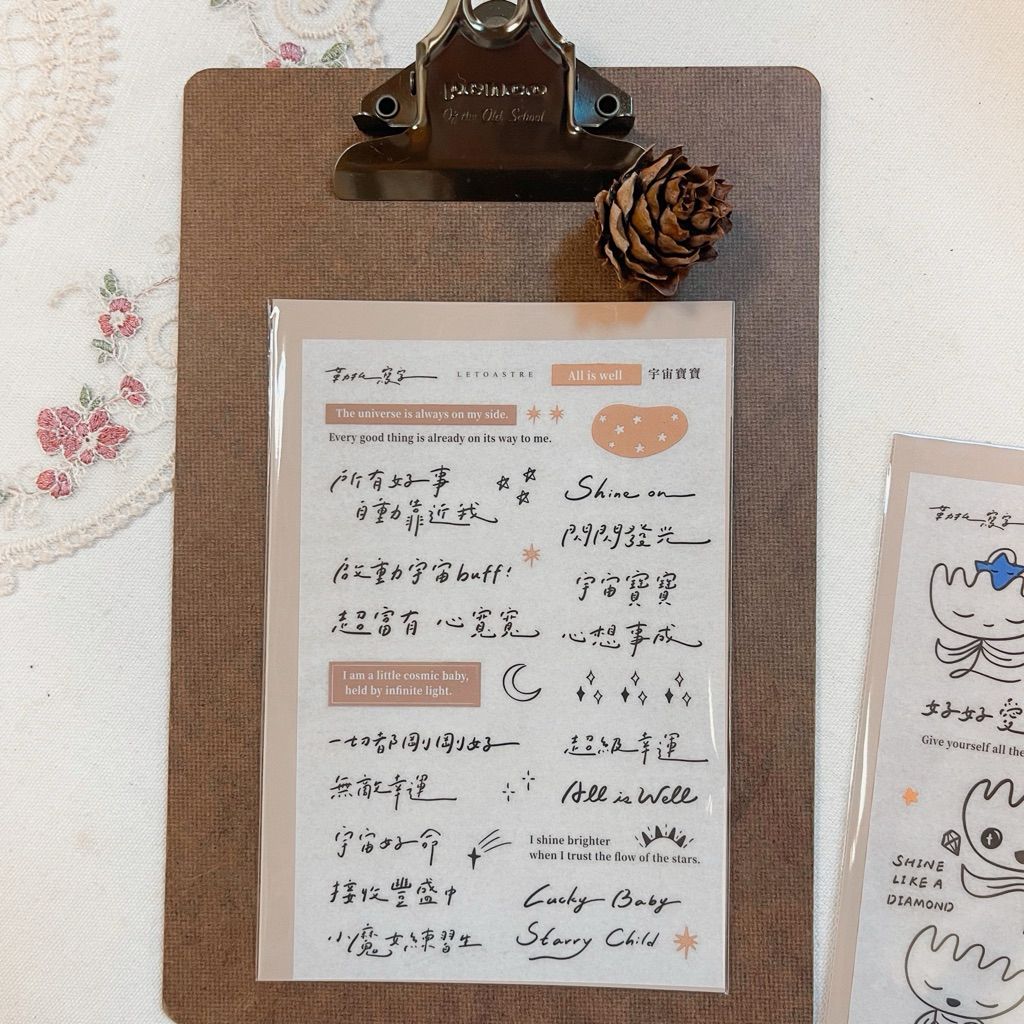 Of the Old School
LETOASTRE
All is well
宇宙寶寶
The universe is always on my side.
Every good thing is already on its way to me.
所有好事
自動靠近我
Shine on
閃閃發光
啟動宇宙buff!
宇宙寶寶
超富有 心寬寬
心想事成
I am a little cosmic baby,
held by infinite light.
一切都剛剛好
超級幸運
無敵幸運
All is Well
宇宙好命
I shine brighter
when I trust the flow of the stars.
接收豐盛中
Lucky Baby
小魔女練習生
Starry Child
好好愛
Give yourself all the
SHINE
LIKE A
DIAMOND